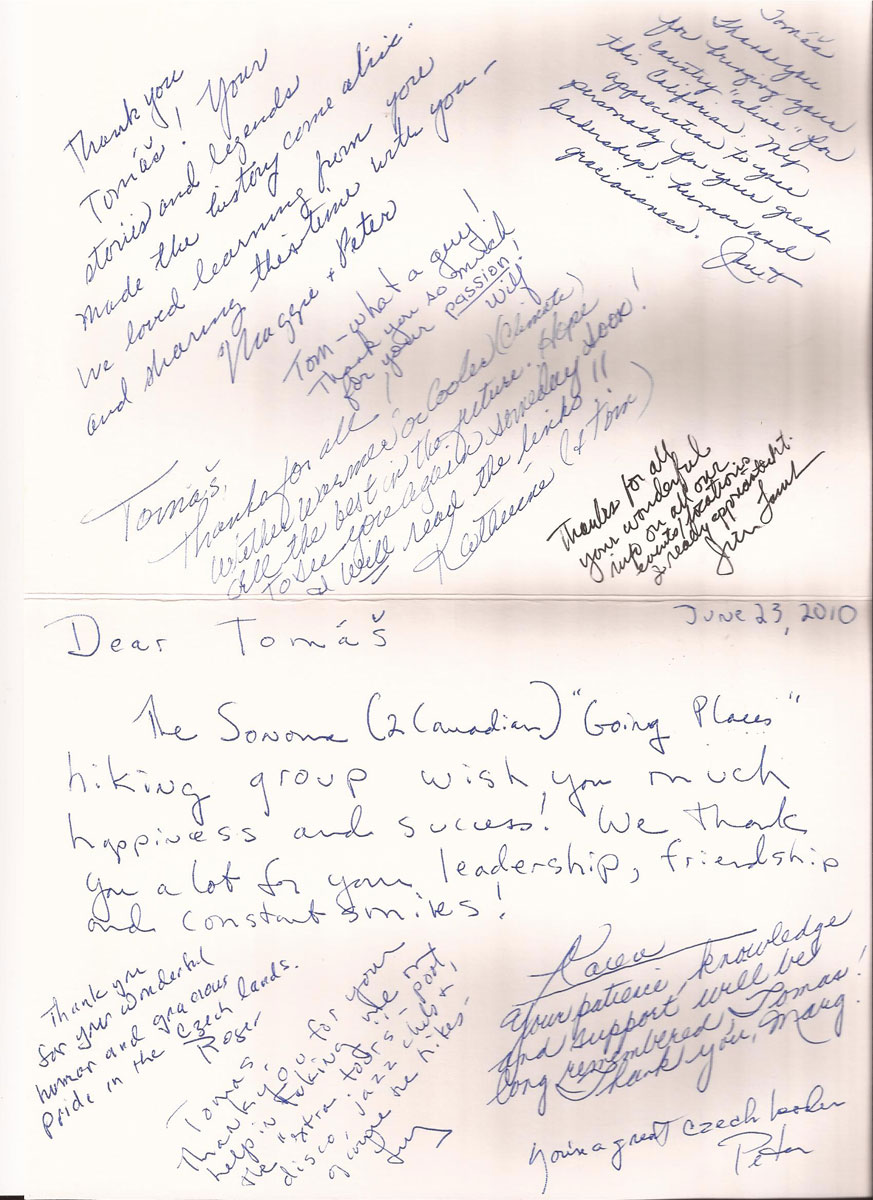 Thank you
Tomáš! Your
stories and legends
made the history come alive.
We loved learning from you
and sharing this time with you—
Maggie + Peter
Tomáš
Thank you
for bringing your
country "alive" for
this Californian. My
appreciation to you
personally for your great
leadership, humor and
graciousness.
Janet
Tom - what a guy!
Thank you so much
for your passion!
Wilf
Tomáš,
Thanks for all!
Whether Warmer or Cooler (Climate)
All the best in the future. Hope
to see you again someday soon!
I will read the links!!
Katherine (+ Tom)
Thanks for all
your wonderful
info on all our
events/locations
I really appreciated it.
June 23, 2010
Dear Tomáš
The Sonoma (2 Canadian) "Going Places"
hiking group wish you much
happiness and success! We thank
you a lot for your leadership, friendship
and constant smiles!
Thank you
for your wonderful
humor and gracious
pride in the Czech lands.
Roger
Tomas
Thank you for your
help in taking me on
the "extra tours"- port,
disco, jazz club +
of course the hikes-
Karen
Your patience, knowledge
and support will be
long remembered Tomas!
Thank you, Marg.
You're a great Czech leader
Peter